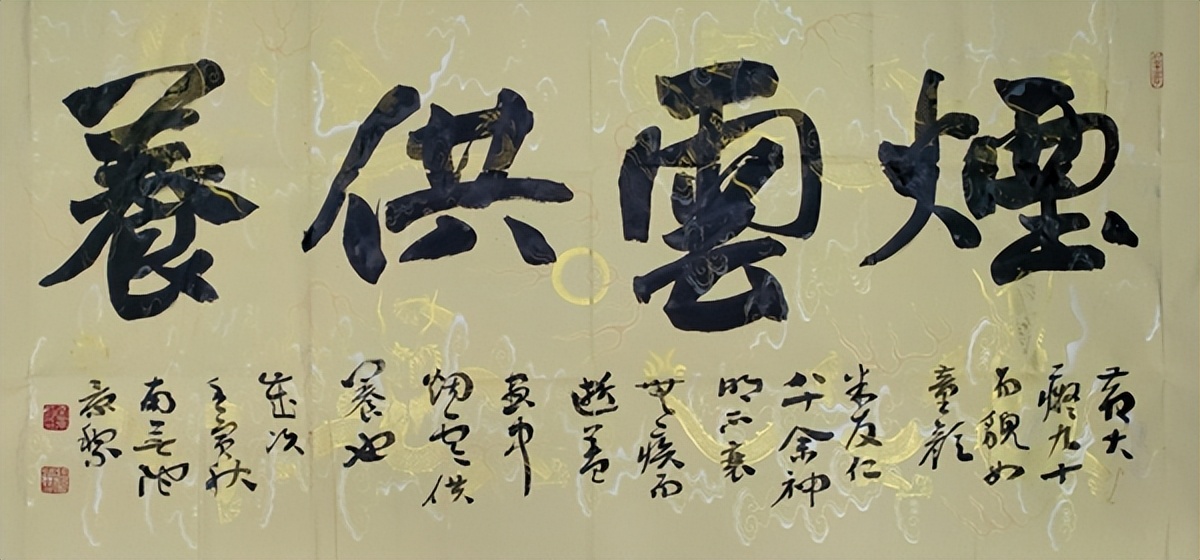 煙雲供養
黄大
癡九十
而貌如
童顔
米友仁
八十余神
明不衰
無疾而
逝蓋
畫中
烟雲供
養也
歲次
壬寅秋
南無池